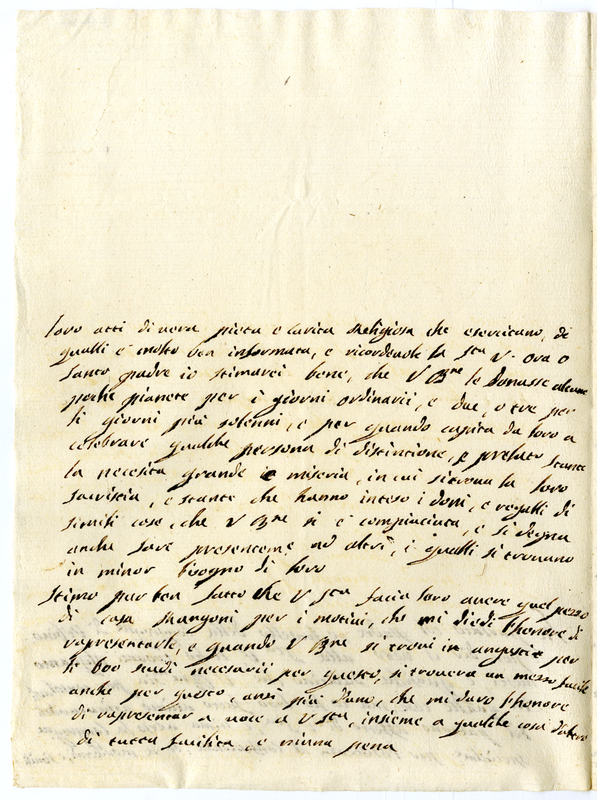 loro atti di vera pieta e carita Religiosa che esercitano, di
qualli e molto ben informata, e ricordevole la Sta V. Ora o
Santo padre io stimarei bene, che V Bne le Donasse alcune
poche pianete per i giorni ordinarii, e due, o tre per
li giorni piu solenni, e per quando capita da loro a
celebrare qualche persona di distincione, stante
la necesita grande e miseria, in cui si trova la loro
Sacristia, e stante che hanno inteso i doni, e regalli di
simili cose, che V Bne si e compiaciuta, e si degna
anche fare presenteme ad altri, i qualli si trovano
in minor bisogno di loro
Stimo pur ben fatto che V Sta facia loro avere quel pezzo
di casa Mangoni per i motivi, che mi diedi l'honore di
rapresentarle, e quando V Bne si trovi in angustie per
le 600 scudi necesarii per questo, si trovera un mezzo facile
anche per questo, anzi piu d'uno, che mi daro l'honore
di rapresentar a voce a V Sta, insieme a qualche cosa d'altro
di tutta facilita, e niuna pena